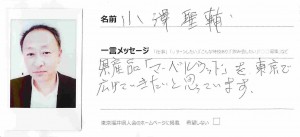 名前 小澤聖輔
一言メッセージ
県産品「マーベルウッド」を東京で
広げていきたいと思っています。
東京福井県人会のホームページに掲載 希望しない □